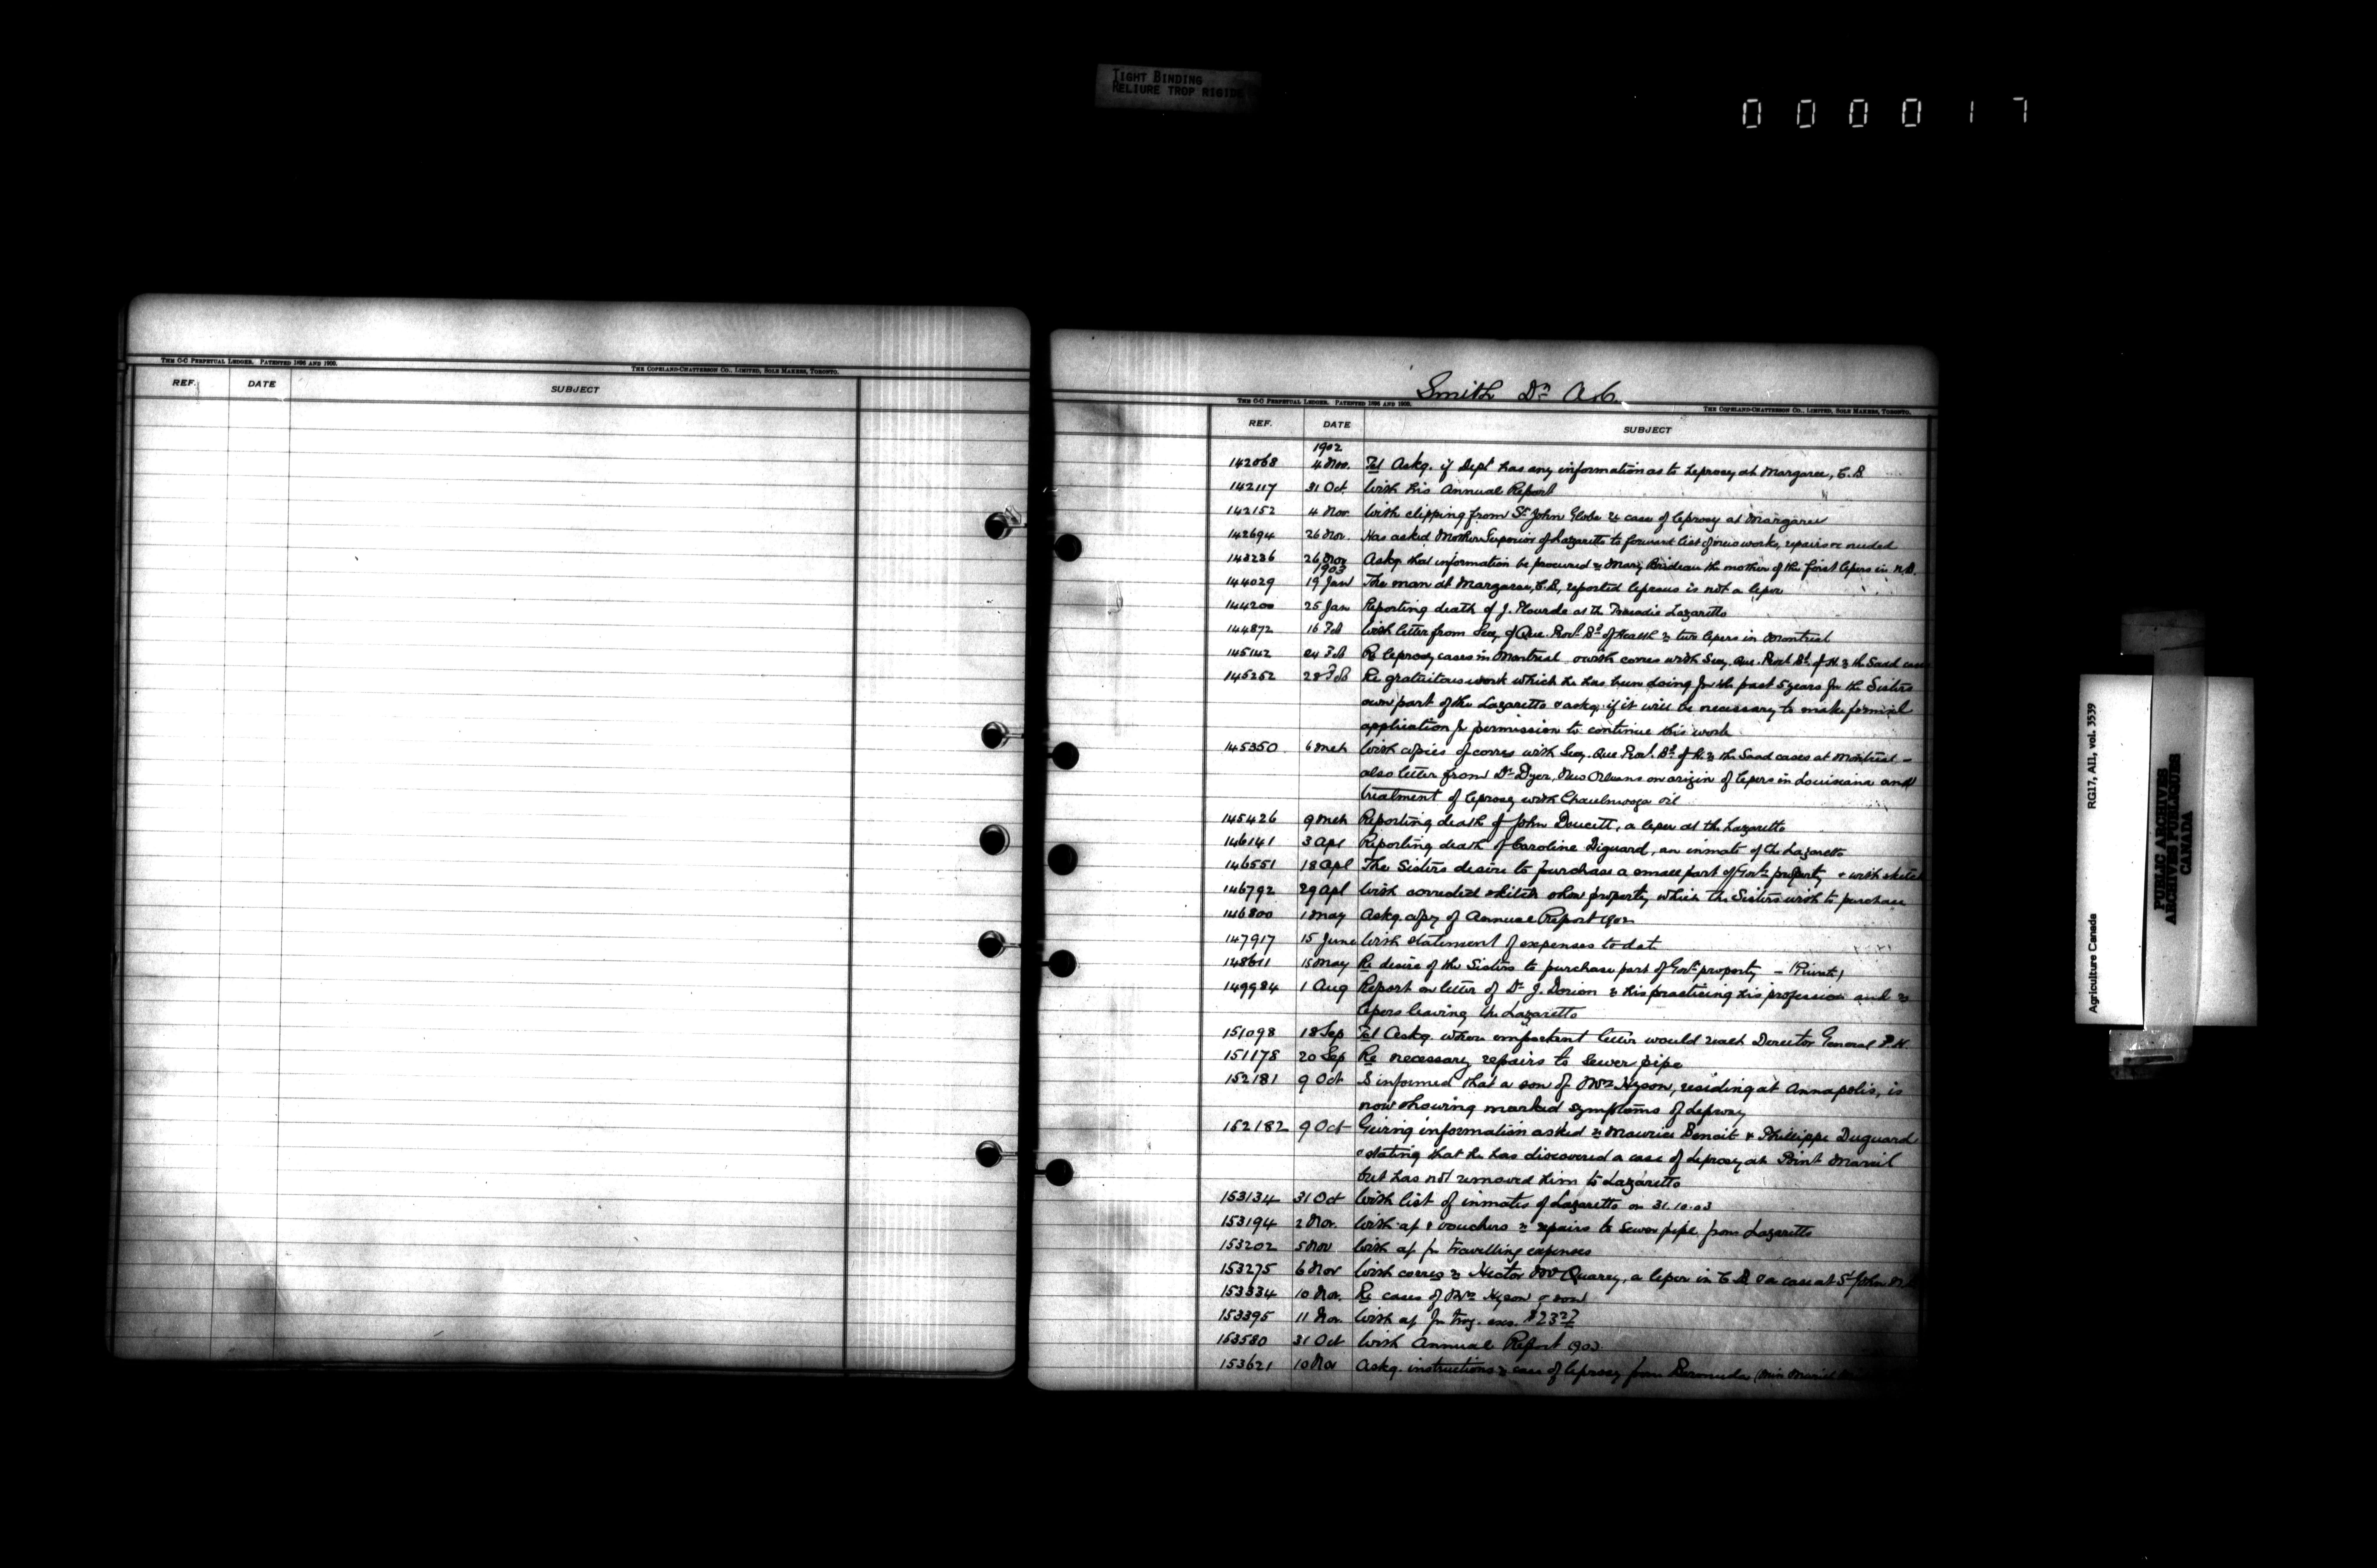 TIGHT BINDING
RELIURE TROP RIGIDE
000017
THE C-C PERPETUAL LEDGER. PATENTED 1896 AND 1900.
THE COPELAND-CHATTERSON CO., LIMITED, SOLE MAKERS, TORONTO.
REF. DATE SUBJECT
Smith Dr A.C.
THE C-C PERPETUAL LEDGER. PATENTED 1896 AND 1900.
THE COPELAND-CHATTERSON CO., LIMITED, SOLE MAKERS, TORONTO.
REF. DATE SUBJECT
1902
142068 4 Nov. Tel Askg. if Dept has any information as to Leprosy at Margaree, C.B.
142117 31 Oct. With his Annual Report
142152 4 Nov. With clipping from St John Globe re case of leprosy at Margaree
142694 26 Nov. Has asked Mother Superior of Lazaretto to forward list of new work, repairs &c needed
143236 26 Nov Askg. that information be procured re Mary Brideau the mother of the first lepers in N.B.
1903
144029 19 Jan The man at Margaree, C.B, reported leprous is not a leper
144200 25 Jan Reporting death of J. Plourde at the Tracadie Lazaretto
144872 16 Feb With letter from Secy of Que. Provl. Bd of Health re two lepers in Montreal
145142 24 Feb Re leprosy cases in Montreal & with corres with Secy. Que. Provl Bd. of H. re the Saad case
145252 28 Feb Re gratuitous work which he has been doing for the past 5 years for the Sisters
own part of the Lazaretto & askg. if it will be necessary to make formal
application for permission to continue this work
145350 6 Mch With copies of corres with Secy. Que Provl. Bd. of H. re the Saad cases at Montreal -
also letter from Dr Dyer, New Orleans on origin of lepers in Louisiana and
treatment of leprosy with Chaulmooga oil
145426 9 Mch Reporting death of John Doucett, a leper at the Lazaretto
146141 3 Apl Reporting death of Caroline Diguard, an inmate of the Lazaretto
146551 18 Apl The Sisters desire to purchase a small part of Govt's property & with sketch
146792 29 Apl With corrected sketch show property which the Sisters wish to purchase
146800 1 May Askg. copy of Annual Report 1902
147917 15 June With statement of expenses to date
148611 15 May Re desire of the Sisters to purchase part of Govt property - (Private)
149984 1 Aug Report on letter of Dr J. Dorion re his practicing his profession and re
lepers leaving the Lazaretto
151098 18 Sep Tel Askg. when important letter would reach Director General P.H.
151178 20 Sep Re necessary repairs to sewer pipe
152181 9 Oct Is informed that a son of Mrs Hyson, residing at Annapolis, is
now showing marked symptoms of leprosy
152182 9 Oct Giving information asked re Maurice Benoit & Phillippe Duguard
& stating that he has discovered a case of leprosy at Point
but has not removed him to Lazaretto
153134 31 Oct With list of inmates of Lazaretto on 31.10.03
153194 2 Nov. With a/c & vouchers re repairs to sewer pipe from Lazaretto
153202 5 Nov With a/c for travelling expenses
153275 6 Nov With corres re Hector McQuarry, a leper in C.B. & a case at St John
153334 10 Nov. Re cases of Mrs Hyson & son
153395 11 Nov. With a/c for trvg. exs. $23
153580 31 Oct With Annual Report 1903.
153621 10 Nov Askg. instructions re case of leprosy from Bermuda
Agriculture Canada RG17, AII, vol. 3539
PUBLIC ARCHIVES
ARCHIVES PUBLIQUES
CANADA